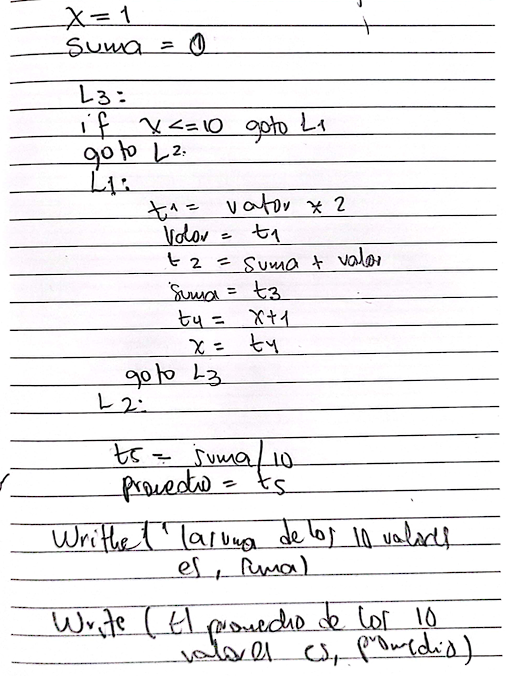 x = 1
suma = 0
L3:
if x <= 10 goto L1
goto L2.
L1:
t1 = valor * 2
Valor = t1
t2 = suma + valor
suma = t3
t4 = x+1
x = t4
goto L3
L2:
t5 = suma/10
promedio = t5
Writhe(' la suma de los 10 valores
es, suma)
Write ( El promedio de los 10
valores es, promedio)